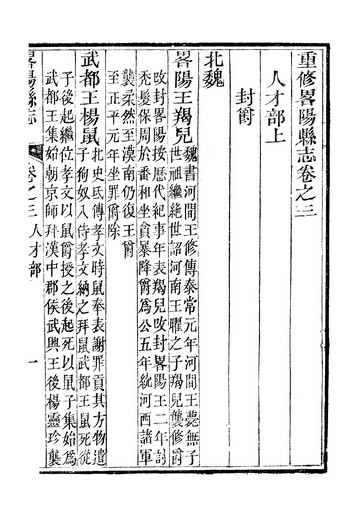 重修畧陽縣志卷之三
人才部上
封爵
北魏
畧陽王羯兒魏書河間王修傳泰常元年河間王薨無子
世祖繼絕世詔河南王曜之子羯兒襲修爵
改封畧陽按歷代紀事年表羯兒改封畧陽王二年討
禿髮保周於番和坐貪暴降爵為公五年統河西諸軍
襲柔然至漠南仍復王爵
至正平元年坐罪爵除
武都王楊鼠北史氐傳孝文時鼠奉表謝罪貢其方物遣
子狗奴入侍孝文納之拜鼠武都王鼠死從
子後起繼位孝文以鼠爵授之後起死以鼠子集始為
武都王集始朝京師拜漢中郡侯武興王後楊靈珍襲
畧陽縣志
卷之三 人才部
一